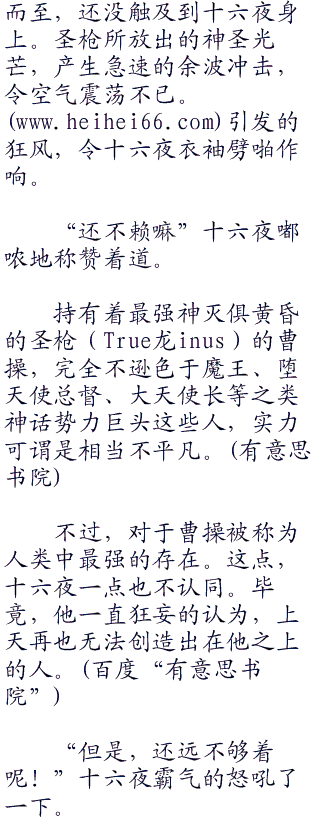 而至，还没触及到十六夜身
上。圣枪所放出的神圣光
芒，产生急速的余波冲击，
令空气震荡不已。
(www.heihei66.com)引发的
狂风，令十六夜衣袖劈啪作
响。
“还不赖嘛”十六夜嘟
哝地称赞着道。
持有着最强神灭俱黄昏
的圣枪（True龙inus）的曹
操，完全不逊色于魔王、堕
天使总督、大天使长等之类
神话势力巨头这些人，实力
可谓是相当不平凡。(有意思
书院)
不过，对于曹操被称为
人类中最强的存在。这点，
十六夜一点也不认同。毕
竟，他一直狂妄的认为，上
天再也无法创造出在他之上
的人。(百度“有意思书
院”)
“但是，还远不够着
呢！”十六夜霸气的怒吼了
一下。